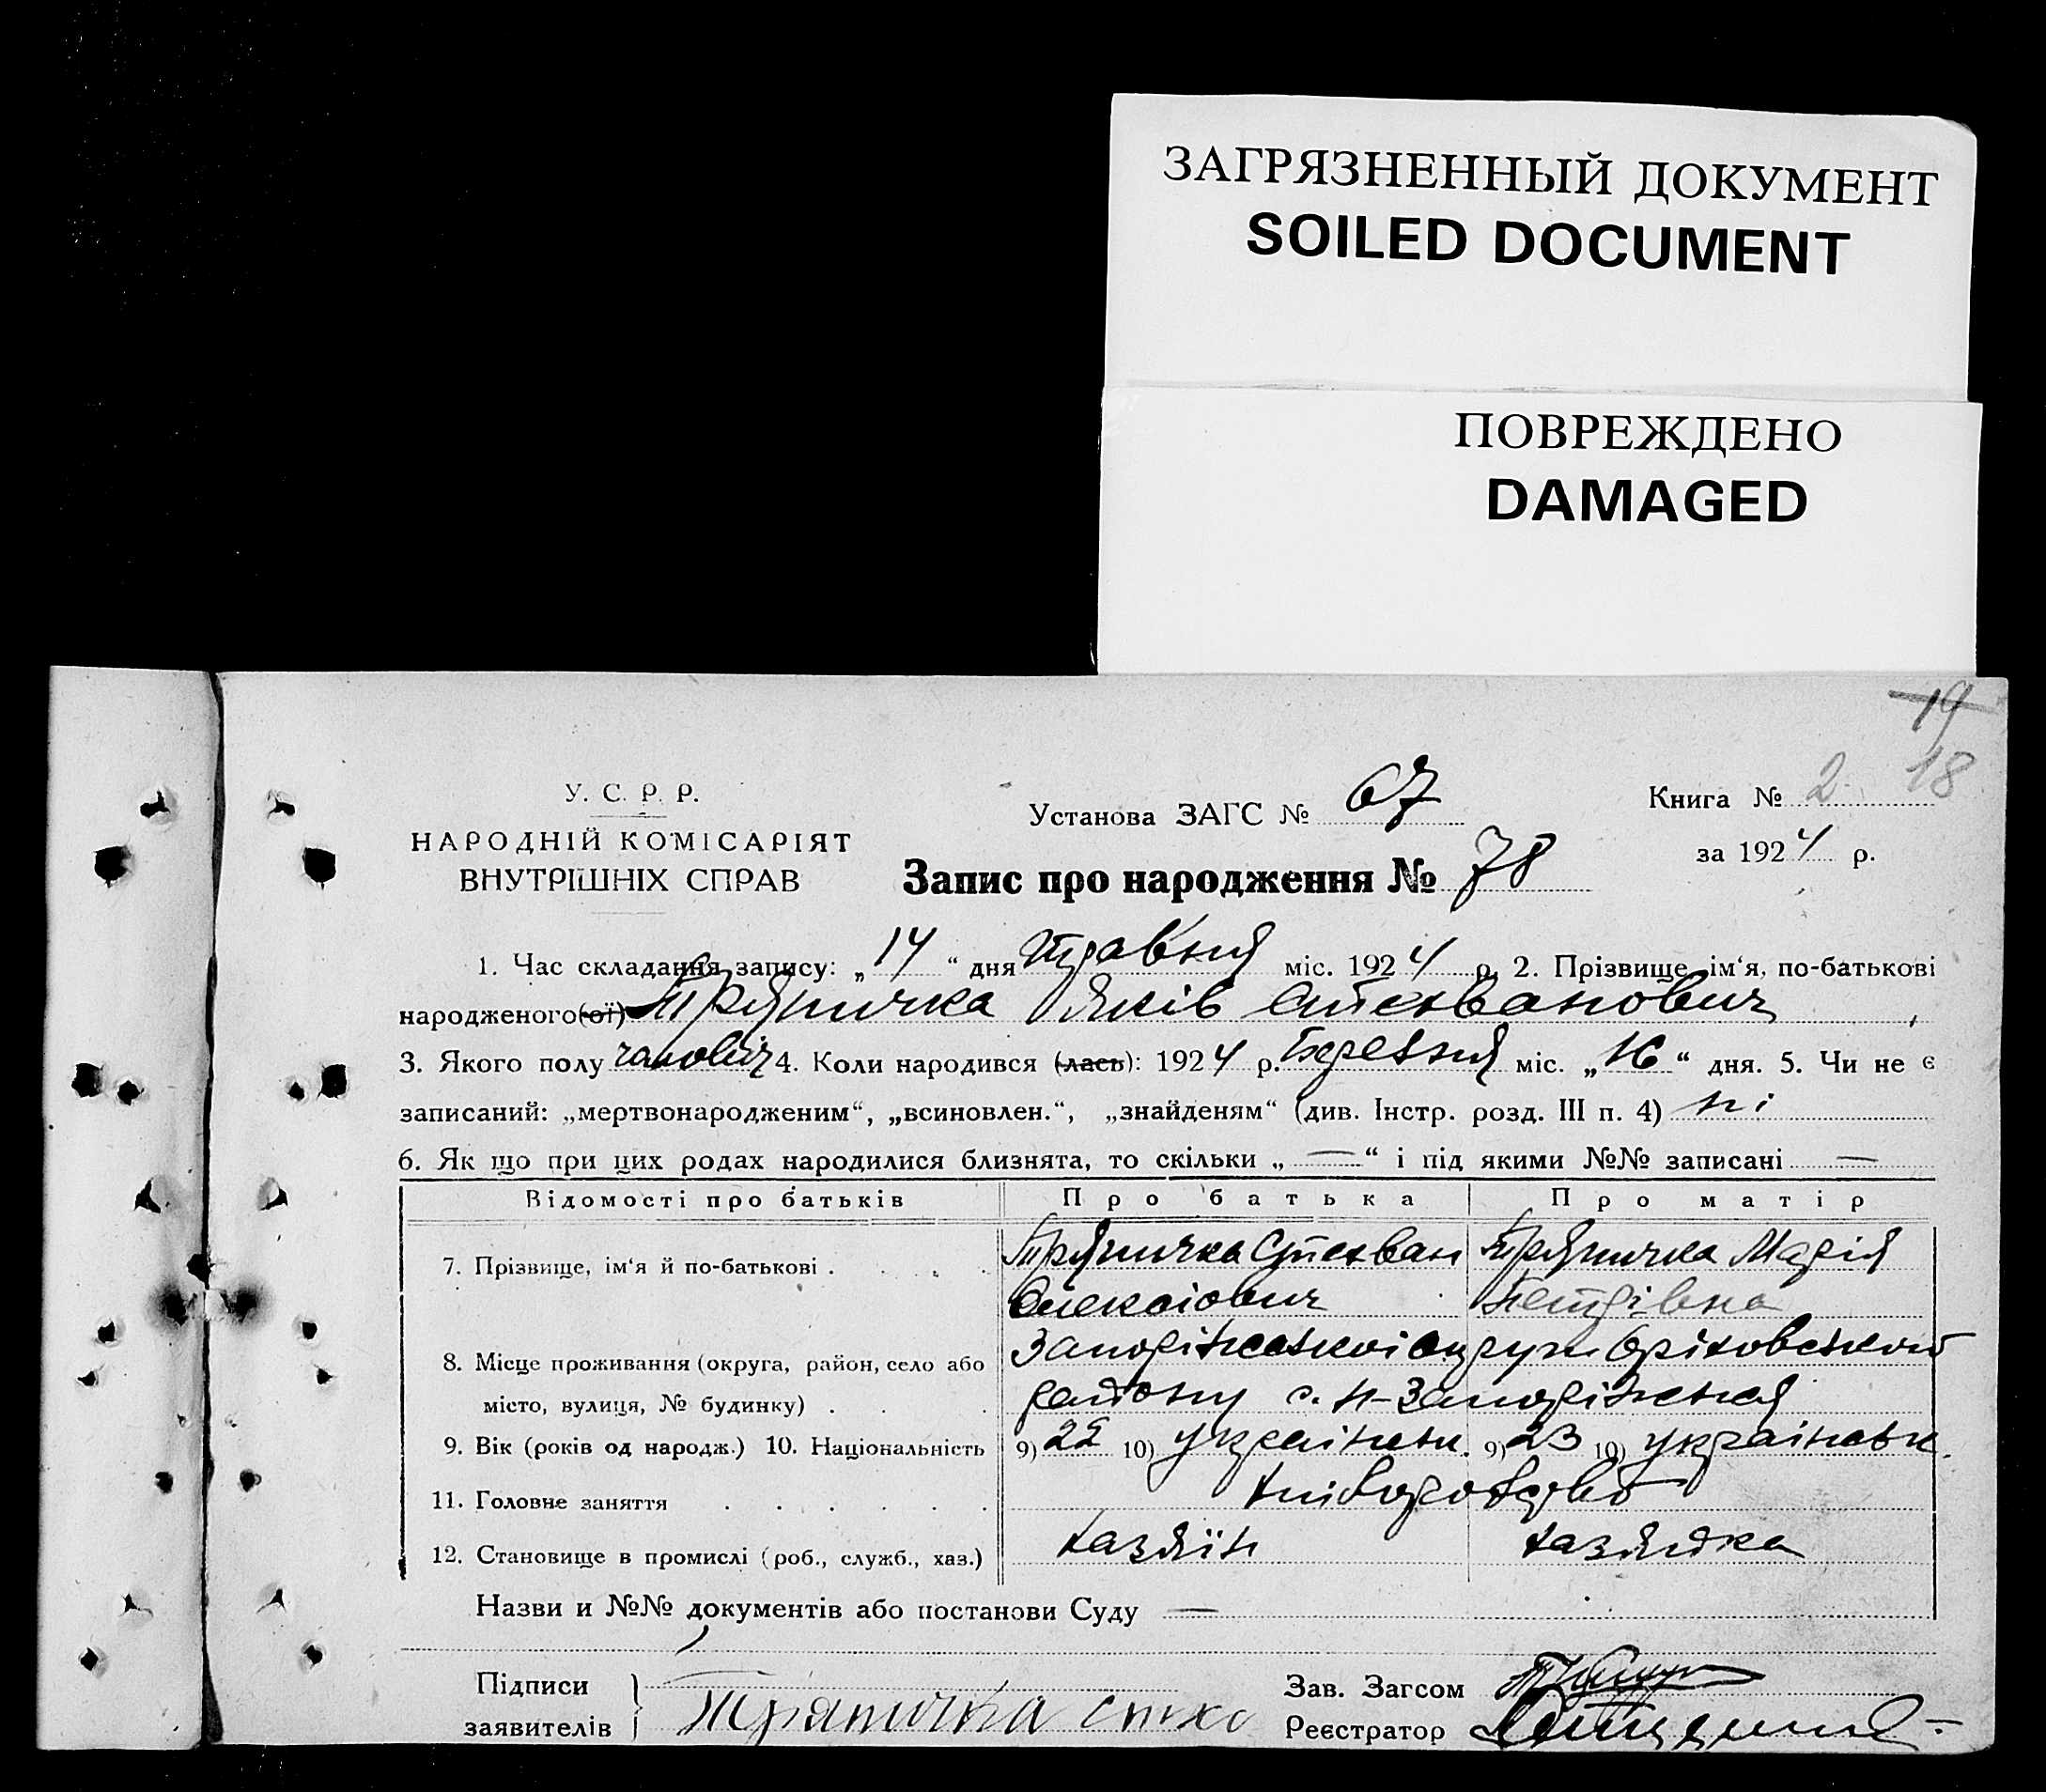 ЗАГРЯЗНЕННЫЙ ДОКУМЕНТ
SOILED DOCUMENT
ПОВРЕЖДЕНО
DAMAGED
19
18
У. С. Р. Р.
НАРОДНІЙ КОМІСАРІЯТ
ВНУТРІШНІХ СПРАВ
Установа ЗАГС № 67
Книга № 2
за 1924 р.
Запис про народження № 78
1. Час складання запису: „14“ дня травня міс. 1924 р. 2. Прізвище, ім‘я, по-батькові
народженого(ої) Тряпичка Яків Стехванович,
3. Якого полу чаловіч 4. Коли народився (лась): 1924 р. березня міс. „16“ дня. 5. Чи не є
записаний: „мертвонародженим“, „всиновлен.“, „знайденям“ (див. Інстр. розд. III п. 4) ні
6. Як що при цих родах народилися близнята, то скільки „—“ і під якими №№ записані —
Відомості про батьків Про батька Про матір
7. Прізвище, ім‘я й по-батькові . Тряпичка Стехван Тряпичка Марія
Олексіович Петрівна
8. Місце проживання (округа, район, село або Запоріжської округи Оріховського
місто, вулиця, № будинку) . району с. Н-Запоріжжя
9. Вік (років од народж.) 10. Національність 9) 22 10) українец. 9) 23 10) українськ.
11. Головне заняття хліборобство
12. Становище в промислі (роб., служб., хаз.) хазяїн хазяйка
Назви и №№ документів або постанови Суду —
Підписи
заявителів Тряпичка Стехо
Зав. Загсом
Реєстратор